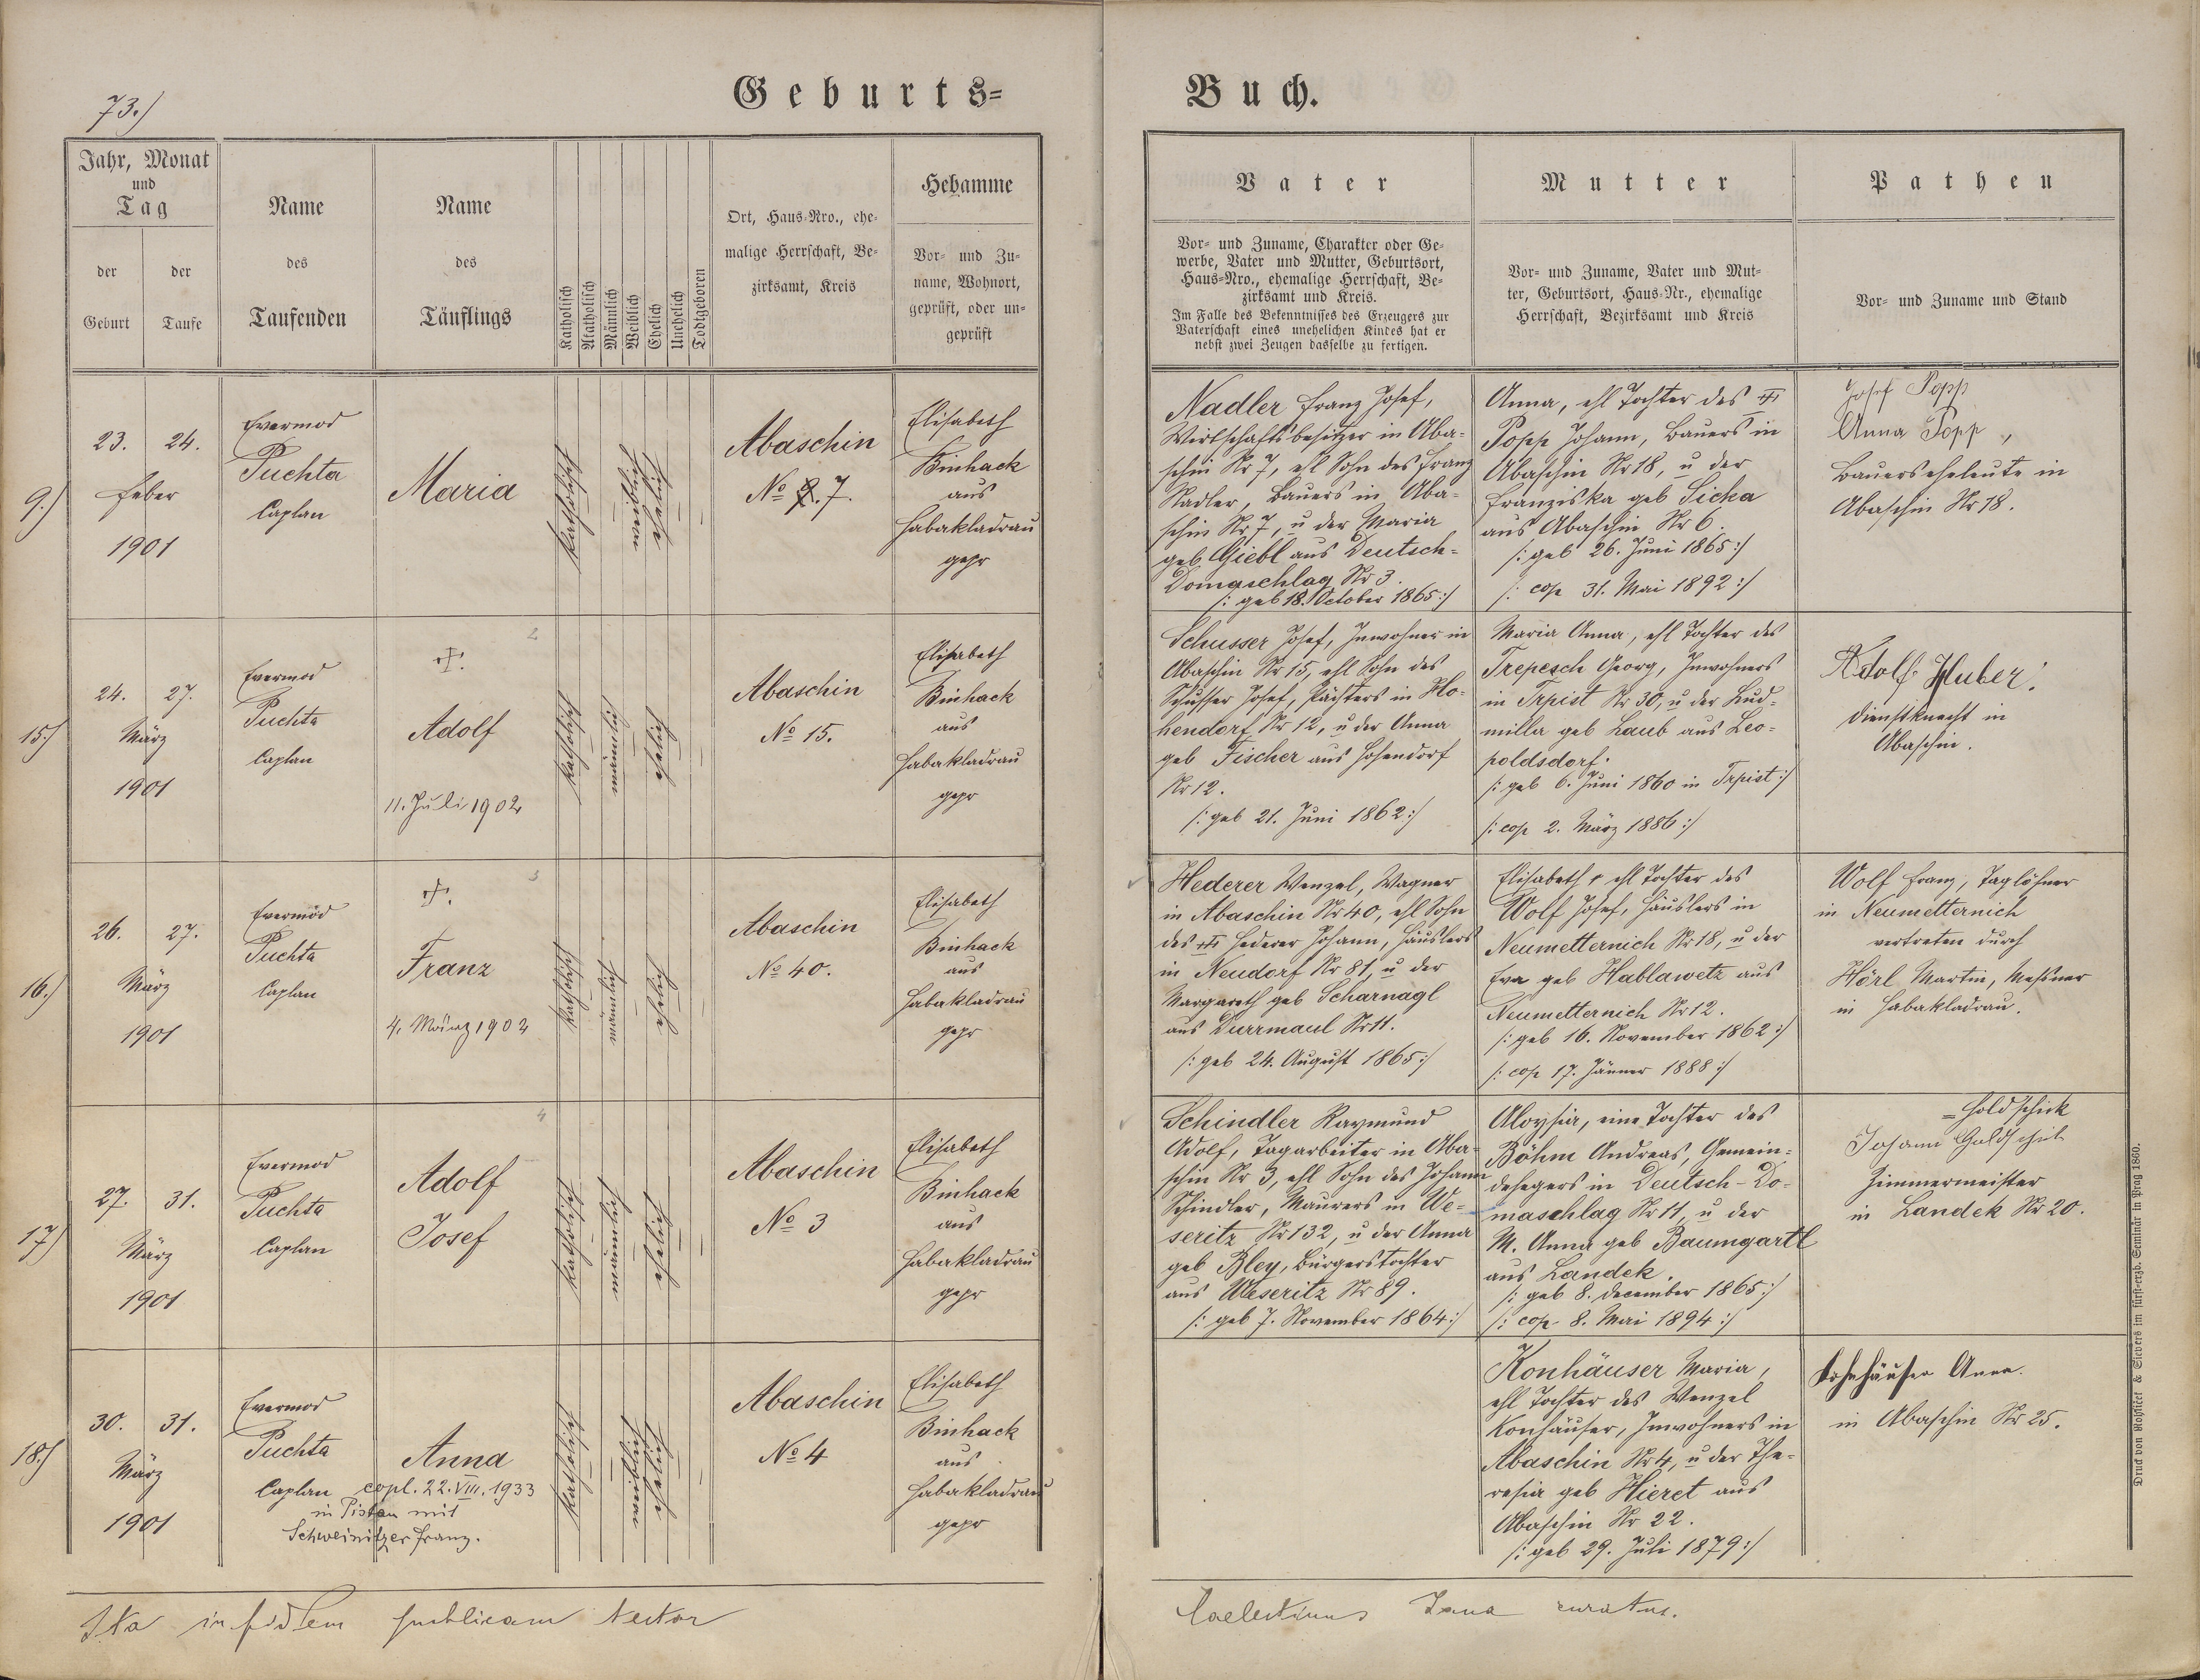 73.)
Geburts=
Buch.
Jahr, Monat
und
Tag
der
Geburt
der
Taufe
Name
des
Taufenden
Name
des
Täuflings
Katholisch
Akatholisch
Männlich
Weiblich
Ehelich
Unehelich
Todtgeboren
Ort, Haus-Nro., ehe-
malige Herrschaft, Be-
zirksamt, Kreis
Hebamme
Vor- und Zu-
name, Wohnort,
geprüft, oder un-
geprüft
Vater
Vor- und Zuname, Charakter oder Ge-
werbe, Vater und Mutter, Geburtsort,
Haus-Nro., ehemalige Herrschaft, Be-
zirksamt und Kreis.
Im Falle des Bekenntnisses des Erzeugers zur
Vaterschaft eines unehelichen Kindes hat er
nebst zwei Zeugen dasselbe zu fertigen.
Mutter
Vor- und Zuname, Vater und Mut-
ter, Geburtsort, Haus-Nr., ehemalige
Herrschaft, Bezirksamt und Kreis
Pathen
Vor- und Zuname und Stand
9.)
23. 24.
Feber
1901
Evermod
Puchta
Caplan
Maria
katholisch
weiblich
ehelich
Abaschin
No 7.
Elisabeth
Binhack
aus
Habakladrau
gepr
Nadler Franz Josef,
Wirtschaftsbesitzer in Aba-
schin Nr 7, ehl Sohn des Franz
Nadler, Bauers in Aba-
schin Nr 7, u der Maria
geb Giebl aus Deutsch-
Domaschlag Nr 3.
/: geb 18. October 1865 :/
Anna, ehl Tochter des
Popp Johann, Bauers in
Abaschin Nr 18, u der
Franziska geb Sicka
aus Abaschin Nr 6.
/: geb 26. Juni 1865 :/
/: cop 31. Mai 1892 :/
Josef Popp
Anna Popp,
Bauerseheleute in
Abaschin Nr 18.
15.)
24. 27.
März
1901
Evermod
Puchta
Caplan
2
Adolf
11. Juli 1902
katholisch
männlich
ehelich
Abaschin
No 15.
Elisabeth
Binhack
aus
Habakladrau
gepr
Schusser Josef, Inwohner in
Abaschin Nr 15, ehl Sohn des
Schusser Josef, Pächters in Ho-
hendorf Nr 12, u der Anna
geb Fischer aus Hohendorf
Nr 12.
/: geb 21. Juni 1862 :/
Maria Anna, ehl Tochter des
Trepesch Georg, Inwohners
in Trpist Nr 30, u der Lud-
milla geb Laub aus Leo-
poldsdorf.
/: geb 6. Juni 1860 in Trpist :/
/: cop 2. März 1886 :/
Adolf Huber.
Dienstknecht in
Abaschin.
16.)
26. 27.
März
1901
Evermod
Puchta
Caplan
3
Franz
4. März 1902
katholisch
männlich
ehelich
Abaschin
No 40.
Elisabeth
Binhack
aus
Habakladrau
gepr
Hederer Wenzel, Wagner
in Abaschin Nr 40, ehl Sohn
des Hederer Johann, Häuslers
in Neudorf Nr 81, u der
Margareth geb Scharnagl
aus Durrmaul Nr 11.
/: geb 24. August 1865 :/
Elisabeth, ehl Tochter des
Wolf Josef, Häuslers in
Neumetternich Nr 18, u der
Eva geb Hablawetz aus
Neumetternich Nr 12.
/: geb 16. November 1862 :/
/: cop 17. Jänner 1888 :/
Wolf Franz, Taglöhner
in Neumetternich
vertreten durch
Hörl Martin, Messner
in Habakladrau.
17.)
27. 31.
März
1901
Evermod
Puchta
Caplan
4
Adolf
Josef
katholisch
männlich
ehelich
Abaschin
No 3
Elisabeth
Binhack
aus
Habakladrau
gepr
Schindler Raymund
Adolf, Tagarbeiter in Aba-
schin Nr 3, ehl Sohn des Johann
Schindler, Maurers in We-
seritz Nr 132, u der Anna
geb Bley, Bürgerstochter
aus Weseritz Nr 89.
/: geb 7. November 1864 :/
Aloysia, eine Tochter des
Böhm Andreas, Gemein-
dehegers in Deutsch-Do-
maschlag Nr 11, u der
M. Anna geb Baumgartl
aus Landek.
/: geb 8. December 1865 :/
/: cop 8. Mai 1894 :/
=Goldschick
Johann
Zimmermeister
in Landek Nr 20.
18.)
30. 31.
März
1901
Evermod
Puchta
Caplan
Anna
copl. 22. VIII. 1933
in Pistau mit
Schweinitzer Franz.
katholisch
weiblich
ehelich
Abaschin
No 4
Elisabeth
Binhack
aus
Habakladrau
gepr
Konhäuser Maria,
ehl Tochter des Wenzel
Konhäuser, Inwohners in
Abaschin Nr 4, u der The-
resia geb Hieret aus
Abaschin Nr 22.
/: geb 29. Juli 1879 :/
Kohnhäuser Anna.
in Abaschin Nr 25.
Ita in fidem publicam testor
curatus.
Druck von Rohliček & Sievers im fürst-erzb. Seminär in Prag 1860.